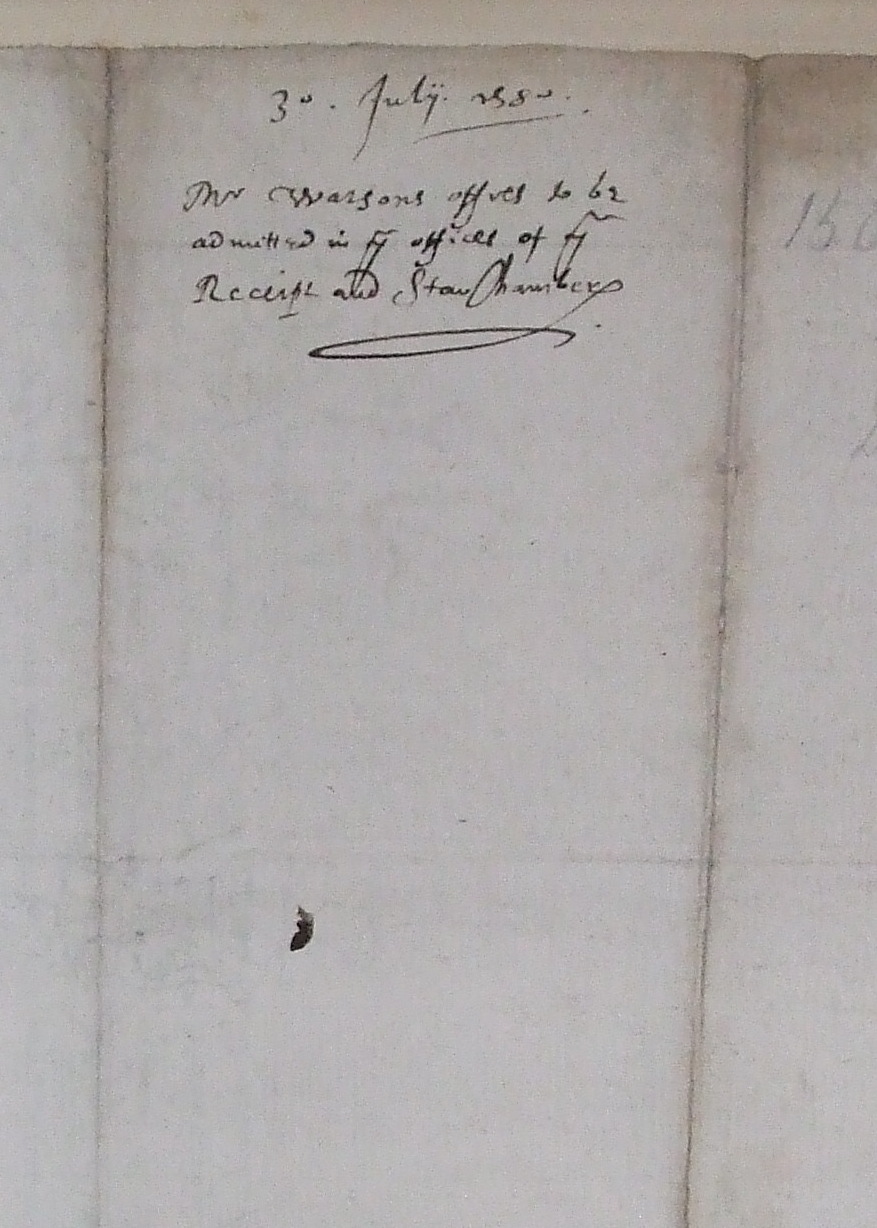 30. Julij. 1580.
Mr Watsons offres to be
admitted in ye offices of ye
Receipt and Star Chamber